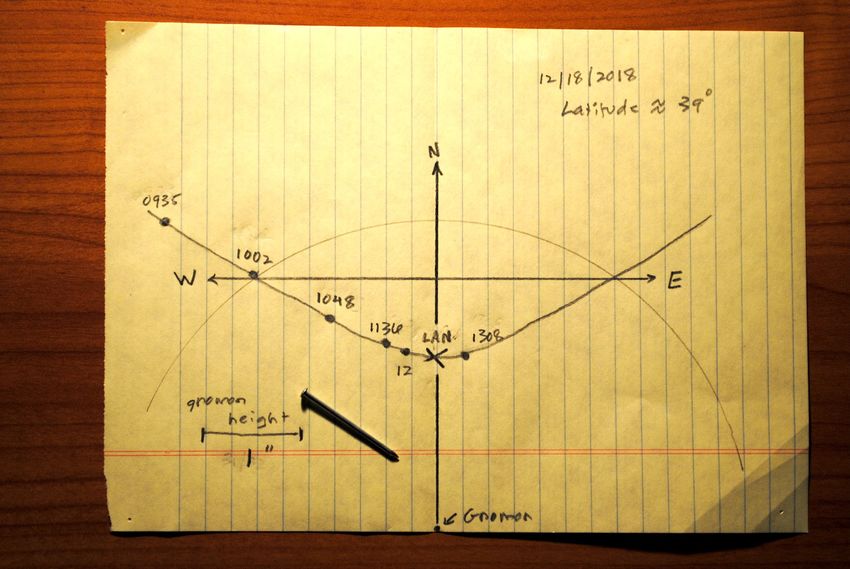 12/18/2018
Latitude ≈ 39°
N
0935
1002
W
E
1048
1136
LAN
1308
12
gnomon
height
1"
Gnomon